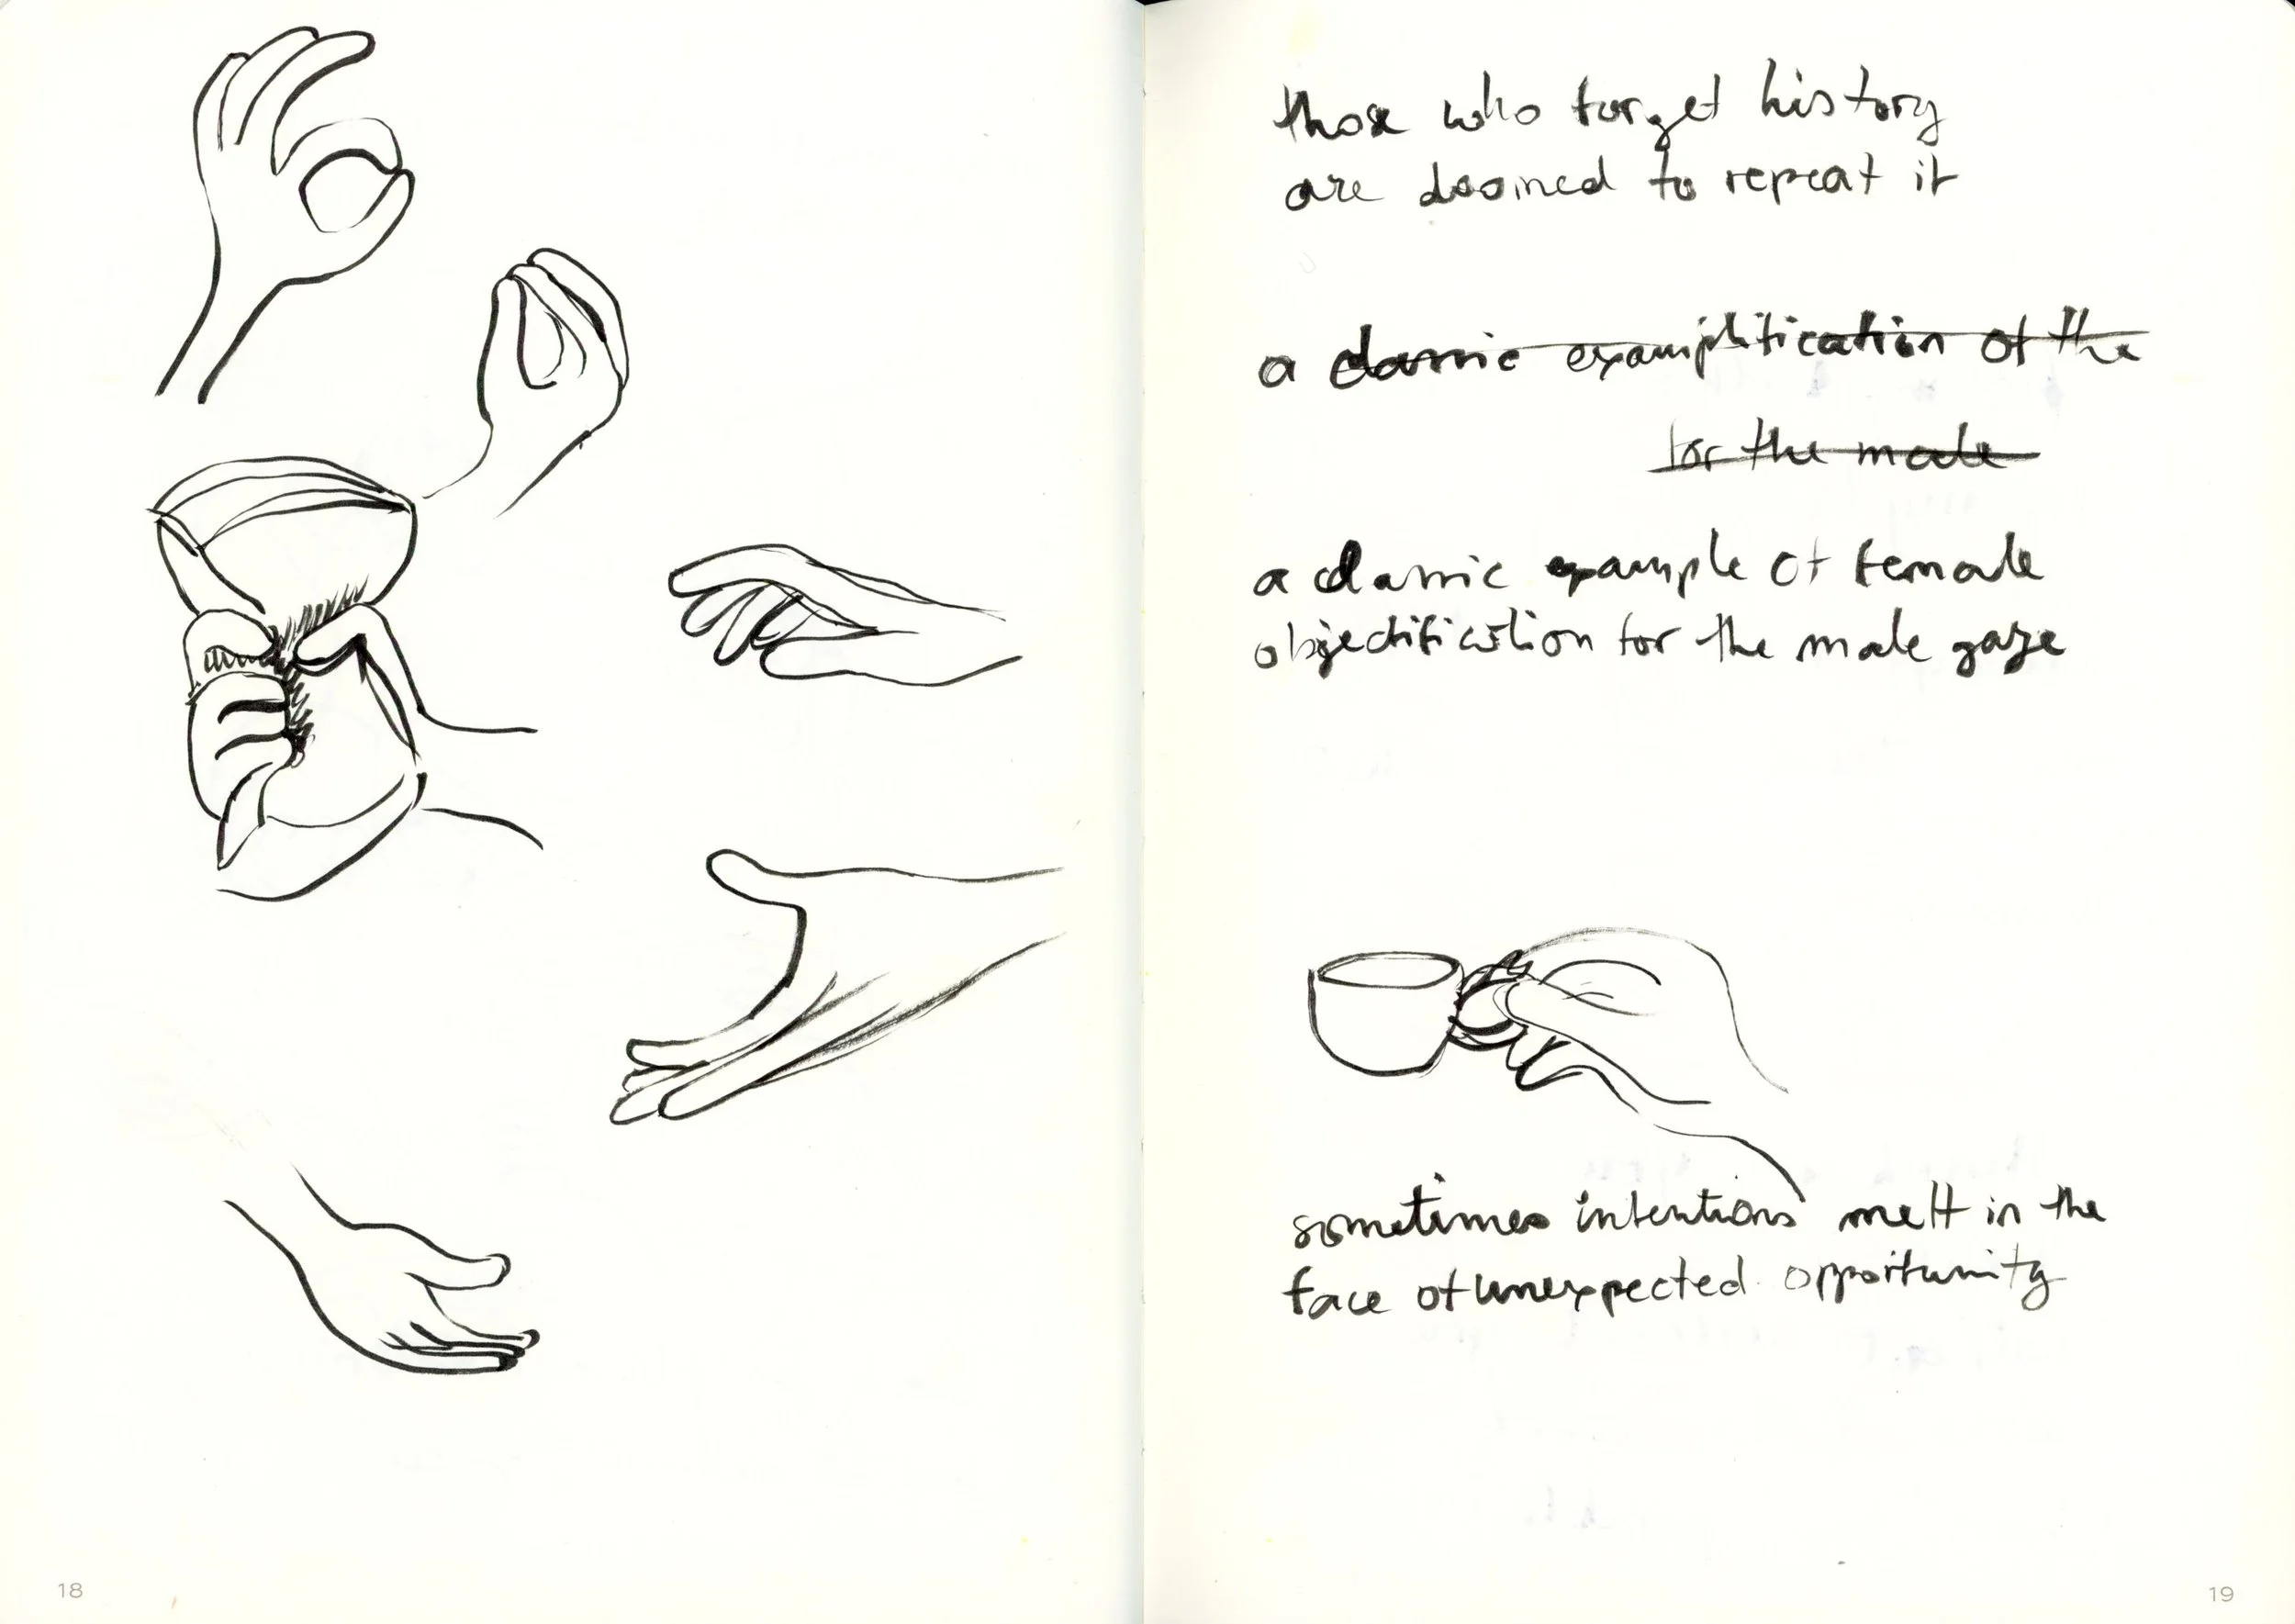 those who forget history
are doomed to repeat it
a classic examplification of the
for the male
a classic example of female
objectification for the male gaze
sometimes intentions melt in the
face of unexpected opportunity
18
19